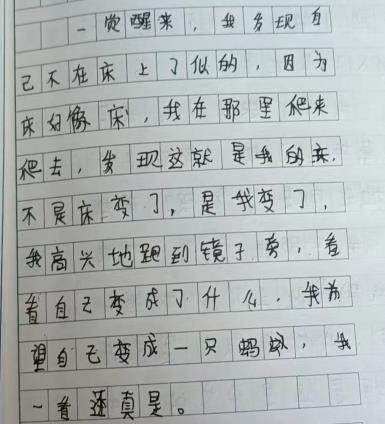 一觉醒来，我发现自
己不在床上了似的，因为
床好像床，我在那里爬来
爬去，发现这就是我的床，
不是床变了，是我变了，
我高兴地跑到镜子旁，看
看自己变成了什么，我希
望自己变成一只蚂蚁，我
一看还真是。